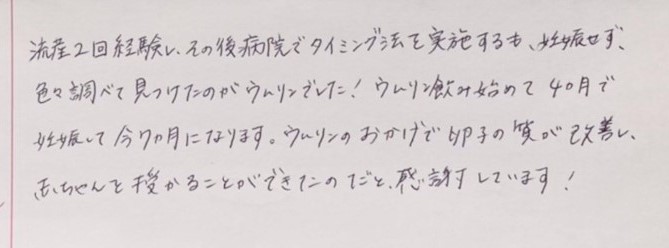 流産2回経験し、その後病院でタイミング法を実施するも、妊娠せず、
色々調べて見つけたのがウムリンでした！ウムリン飲み始めて4ヶ月で
妊娠して今7ヶ月になります。ウムリンのおかげで卵子の質が改善し、
赤ちゃんを授かることができたのだと、感謝しています！